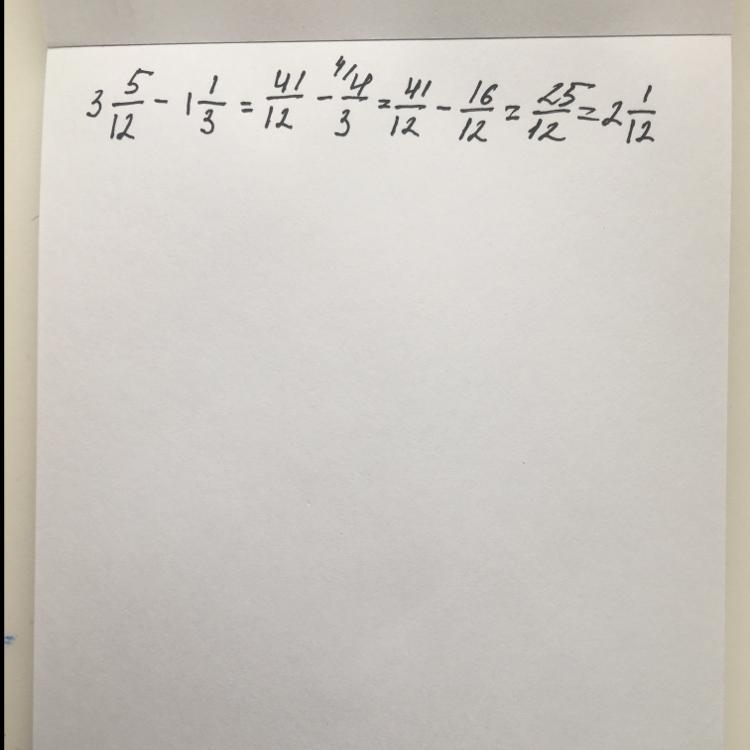 3 5/12 - 1 1/3 = 41/12 - 4/ 4/3 = 41/12 - 16/12 = 25/12 = 2 1/12